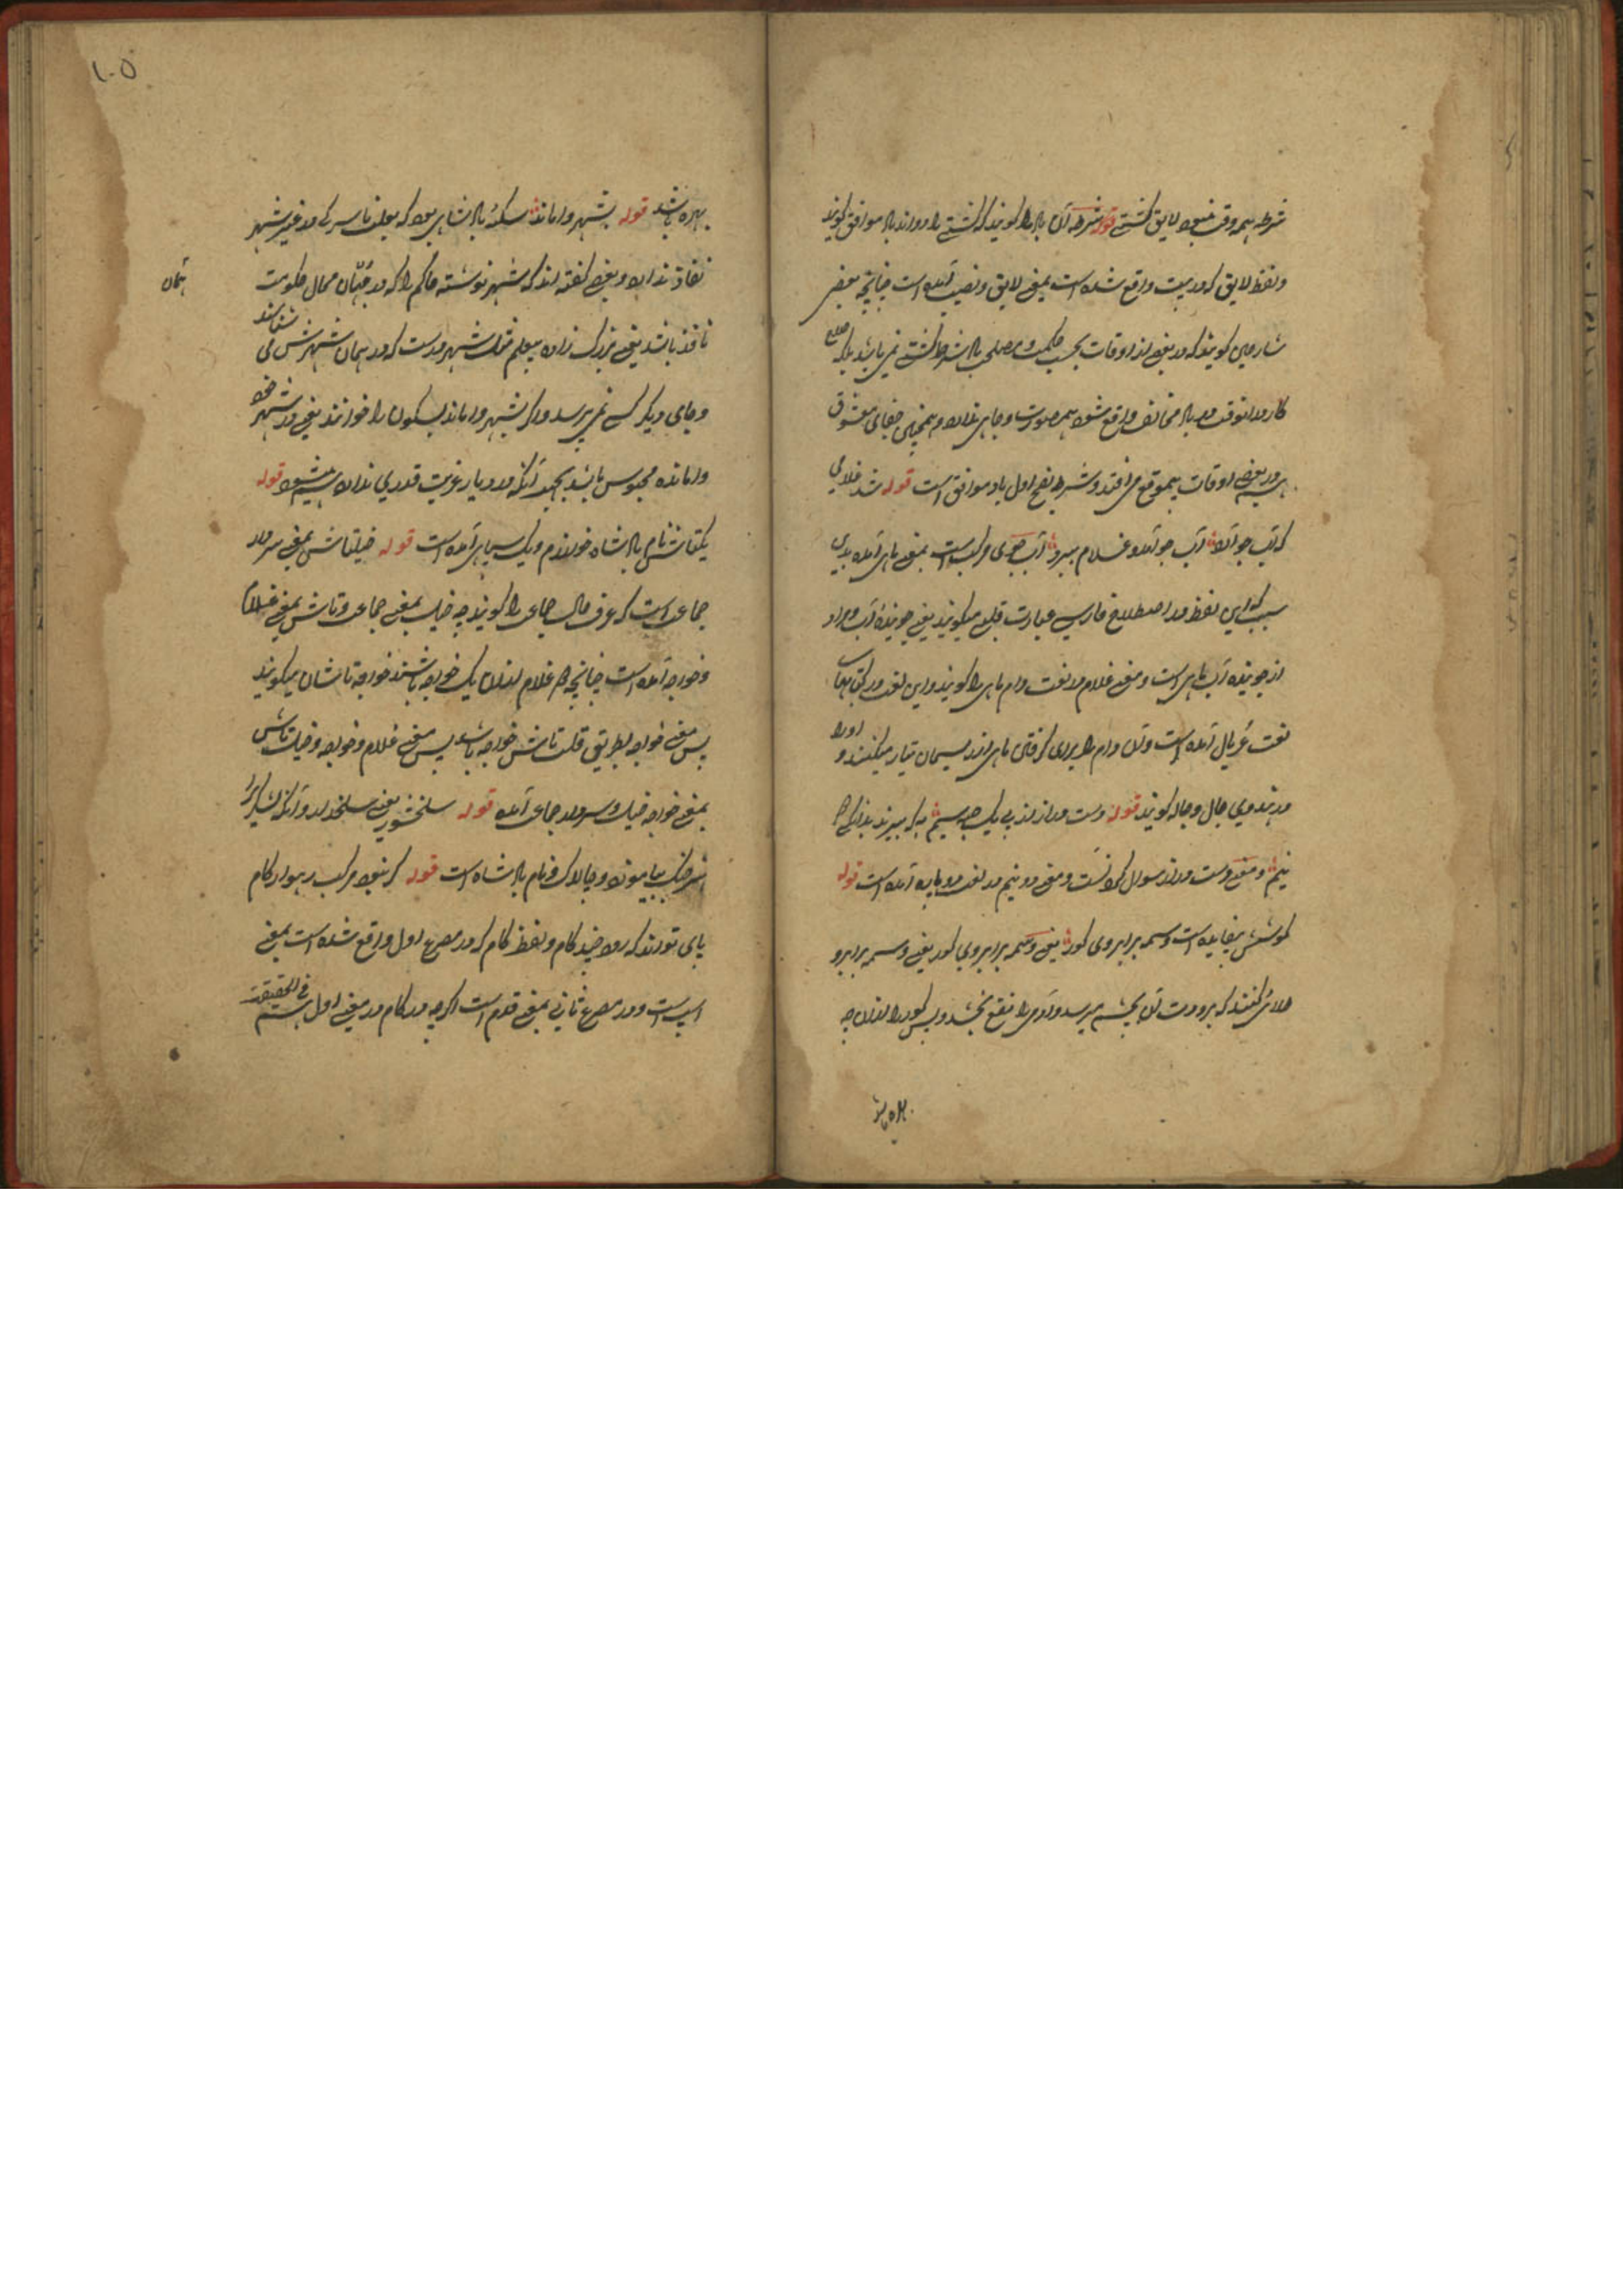 شرطه همه وقت نبود لایق کشتی قوله شرطه آن باد را گویند که کشتی را رواند باد موافق گویند
ولفظ لایق که در بیت واقع شده است بمعنی لایق ونصیب آمده است چنانچه بعضی
شارحین گویند که در بعضی اوقات بحسب حکمت ومصلحت باد شرط کشتی نمی باشد بلکه
کار در آنوقت در باد مخالف واقع شود همه صورت وجاهی ندارد و همچنین جفای معشوق
در بعضی اوقات بموقع می افتد وشرطه بفتح اول باد موافق است قوله شد غلامی
که آب جو آرد آب جو آمد و غلام ببرد آب جوی مرکب است بمعنی ماهی آمده بدین
سبب که این لفظ در اصطلاح فارسی عبارت قلب میگویند یعنی جوینده آب ومراد
از جوینده آب ماهی است ومعنی غلام در لغت دام ماهی را گویند واین لغت در کتابهای
لغت غربال آمده است وآن دام را برای گرفتن ماهی از ریسمان تیار میکنند و او را
در هندوی جال وجاله گویند قوله دست دراز از پی یک حبه سیم به که ببرند بدانگی
نیم ومعنی دست دراز سوال کردنست ومعنی دو نیم در لغت دو پاره آمده است قوله
کوشش بیفایده است وسمه بر ابروی کور یعنی وسمه بر ابروی کور یعنی وسمه بر ابرو
کنند که برودت آن بچشم میرسد و آدمی را نفع بخشد وپس کور را ازان چه
بهره باشد
بهره باشد قوله بشهر واماند سکه پادشاهی بود که در غیر شهر
نفاذ ندارد وبعضی گفته اند که شهر نوشته حاکم را که در جهان محال حکومت
همان
نافذ باشد یعنی بزرگ زاده بیعلم مثل شهر مدست که در همان شهرش می شناسند
وجای دیگر کسی نمی پرسد واگر بشهر واماند بسکون را خوانند یعنی در شهر خود
وامانده محبوس باشد بجهد آنکه در دیار غربت قدری ندارد قوله
یکتاش نام پادشاه خوارزم ویک سپاهی آمده است قوله خیلتاش بمعنی سردار
جماعت است که عرف حال جماعت را گویند چه خیل بمعنی جماعت وتاش بمعنی غلام
وخواجه آمده است چنانچه غلام ازان یک خواجه باشند خواجه تاشان میگویند
پس معنی خواجه بطریق قلب تاش خواجه باشد پس معنی غلام وخواجه وخیل تاش
بمعنی خواجه خیل وسردار جماعت آمده قوله سلحشور یعنی سلحدار و آنکه لشکر را
بیاموزد وچالاک ونام پادشاه است قوله که نبود مرکب رهوار کام
پای تواند که رود چند کام ولفظ کام که در مصرع اول واقع شده است بمعنی
اسپ است ودر مصرع ثانی بمعنی قدم است اگرچه در کام در معنی اول فی الحقیقت
۱۰۵